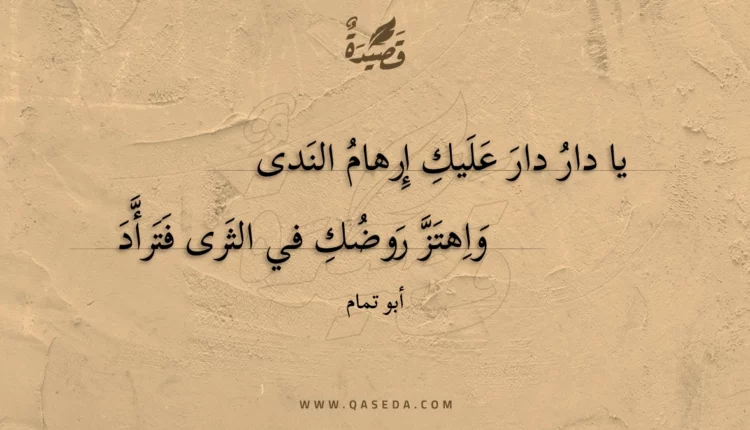 قَصِيْدَةٌ
يا دارُ دارَ عَلَيكِ إِرهامُ النَدى
وَاِهتَزَّ رَوضُكِ في الثَرى فَتَرَأَّدَ
أبو تمام
WWW.QASEDA.COM